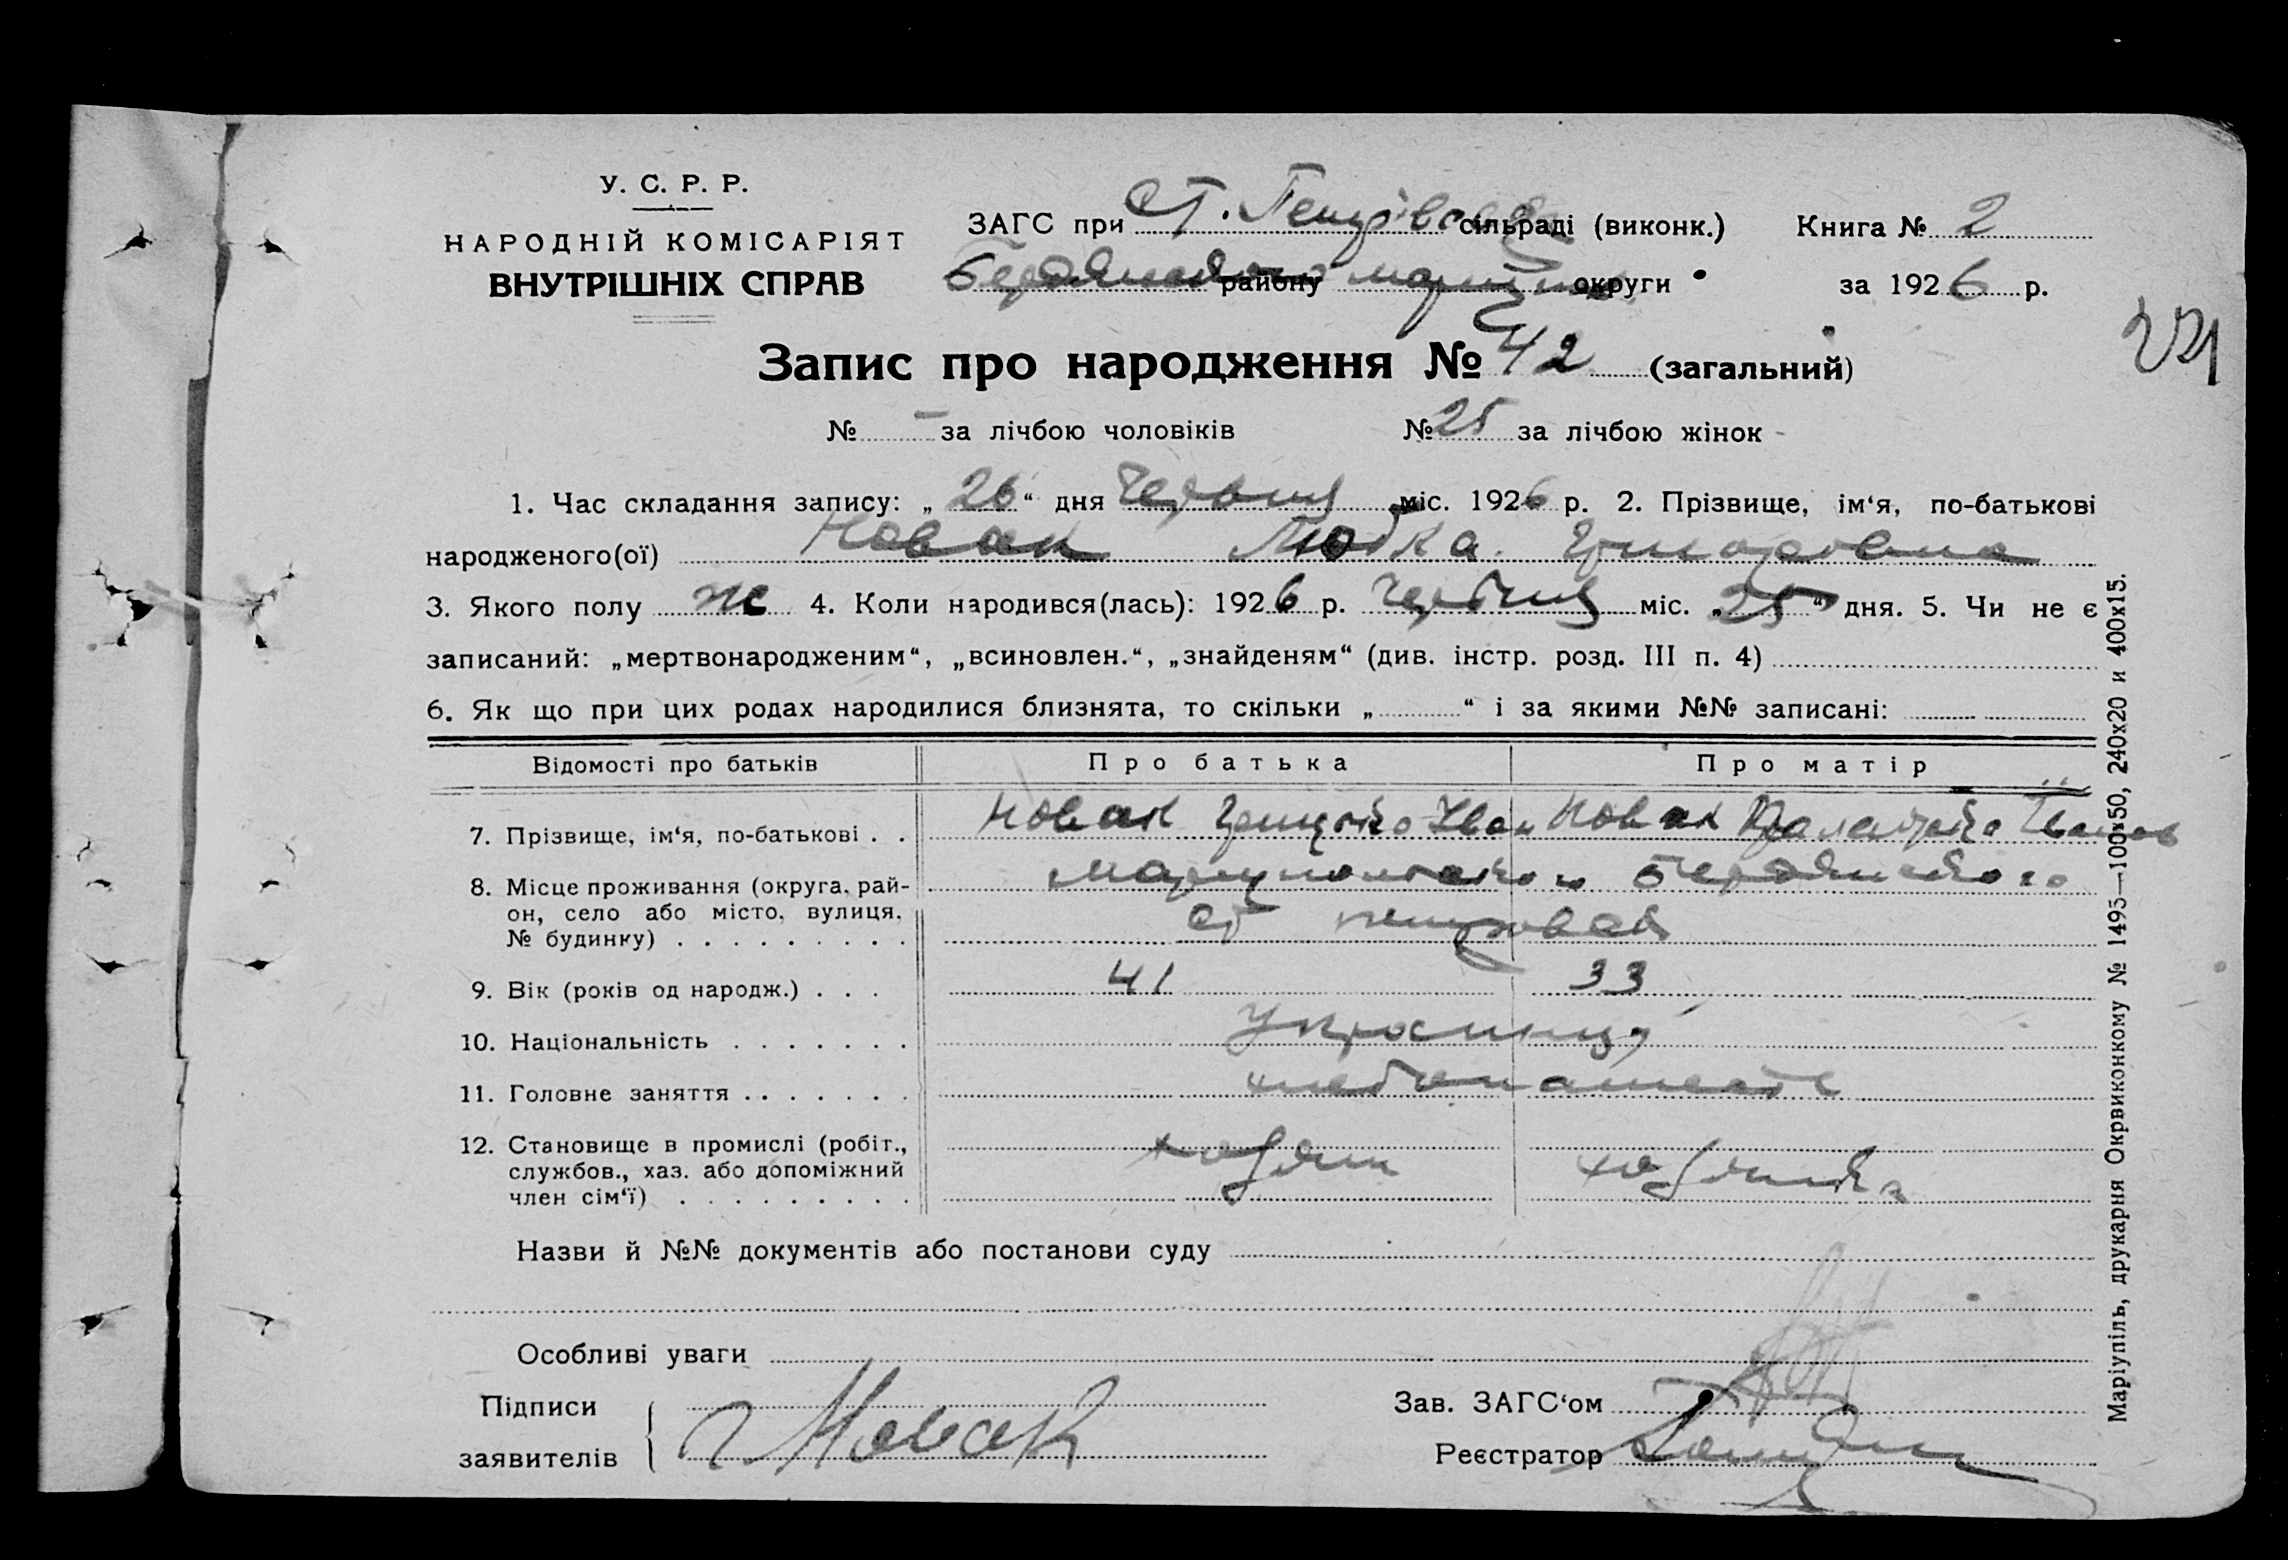 У. С. Р. Р.
НАРОДНІЙ КОМІСАРІЯТ
ВНУТРІШНІХ СПРАВ
ЗАГС при Ст. сільраді (виконк.) Книга № 2
району округи за 1926 р.
Запис про народження № 42 (загальний)
№ — за лічбою чоловіків № 25 за лічбою жінок
1. Час складання запису: „26“ дня Червня міс. 1926 р. 2. Прізвище, ім‘я, по-батькові
народженого(ої) Новак Любка Григоровна
3. Якого полу ж 4. Коли народився(лась): 1926 р. Червня міс. „25“ дня. 5. Чи не є
записаний: „мертвонародженим“, „всиновлен.“, „знайденям“ (див. інстр. розд. III п. 4)
6. Як що при цих родах народилися близнята, то скільки „ “ і за якими №№ записані:
Відомості про батьків Про батька Про матір
7. Прізвище, ім‘я, по-батькові . . Новак Іван Новак
8. Місце проживання (округа, рай-
он, село або місто, вулиця,
№ будинку) . . . . . . . . . ст
9. Вік (років од народж.) . . . 41 33
10. Національність . . . . . . . Українці
11. Головне заняття . . . . . . . хлебопашест
12. Становище в промислі (робіт.,
службов., хаз. або допоміжний
член сім‘ї) . . . . . . . . . хазяин хазяйка
Назви й №№ документів або постанови суду
Особливі уваги
Підписи
заявителів Новак
Зав. ЗАГС‘ом
Реєстратор
Маріупіль, друкарня Окрвиконкому № 1495—100х50, 240х20 и 400х15.